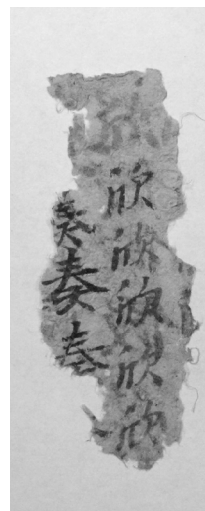 欣欣欣欣欣欣
奏奏奏